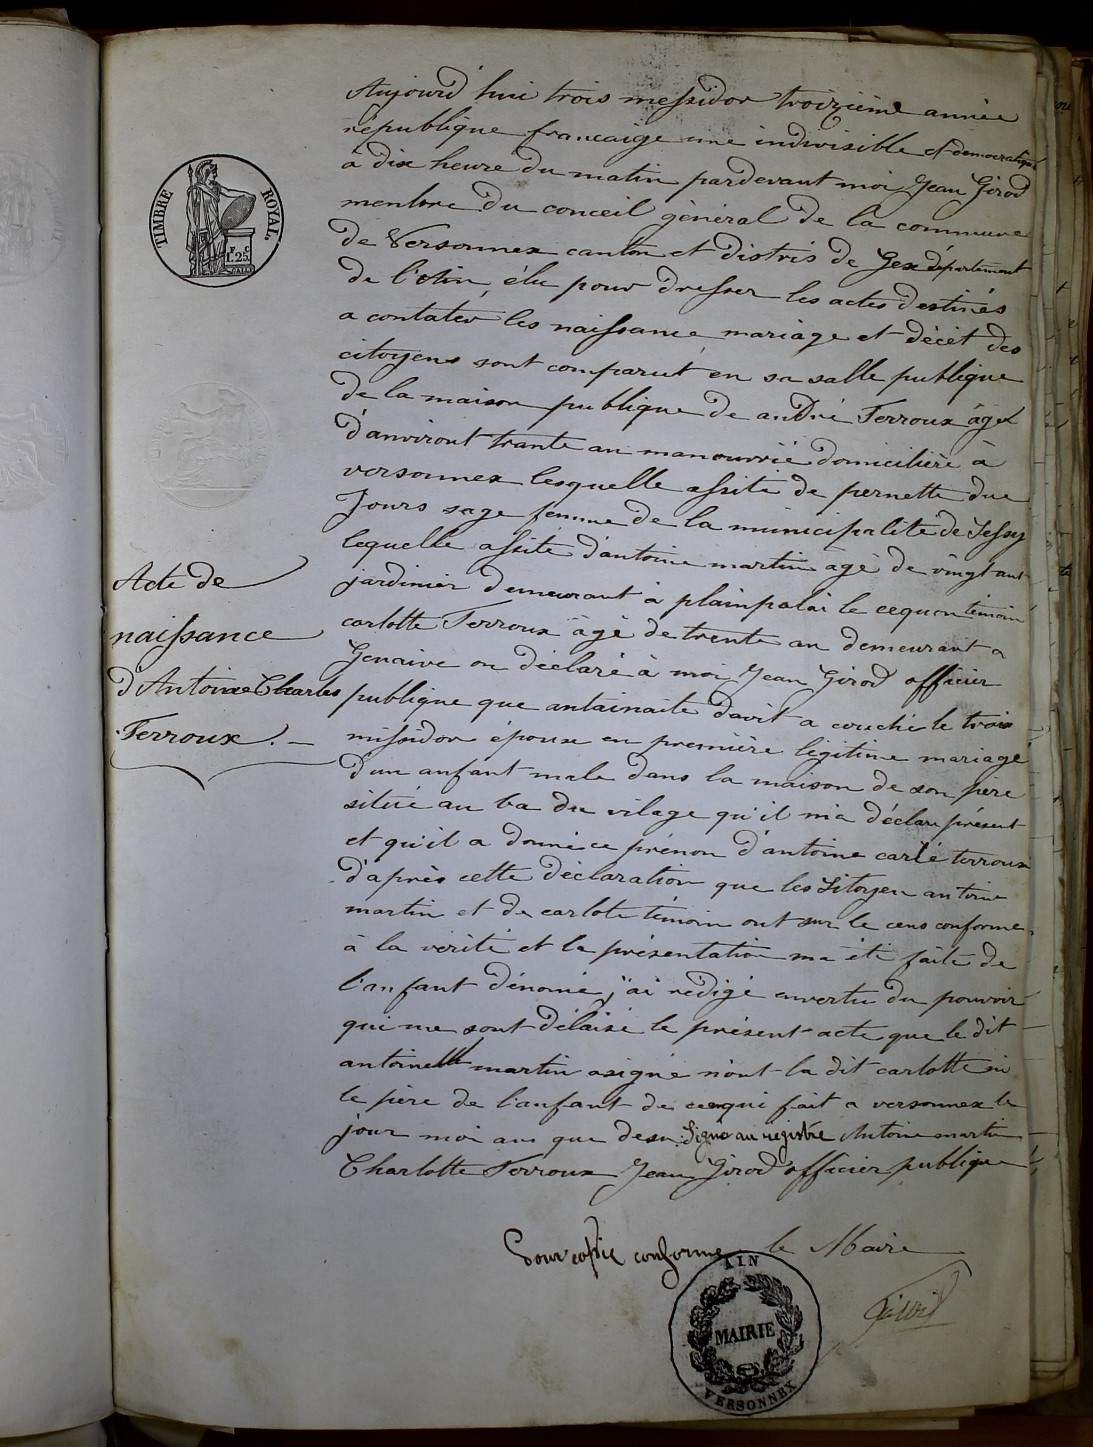 Aujourd'hui trois messidor troizième année
république francaige une indivisible et democratique
à dix heure du matin pardevant moi Jean Girod
menbre du conceil général de la commune
de Versonnex canton et distris de Gex département
de l'Ain, élu pour dresser les actes destinés
a contater les naissance mariage et décèt des
citoyens sont comparut en sa salle publique
de la maison publique de andré Terroux âgé
d'anviront trante an manouvrié domicilière à
versonnex lesquelle assité de pernette due
Jours sage femme de la municipalité de Sessy
lequelle assite d'antoine martin agé de vingt ans
jardinier demeurant à plainpalai le cequon témoin
carlotte Terroux âgé de trente an demeurant a
Genaive on déclaré à moi Jean Girod officier
Acte de
naissance
d'Antoine Charles
Terroux. —
publique que antainaite davit a couché le trois
missidor épouse en première légitime mariage
d'un anfant male dans la maison de son père
situé au ba du vilage qu'il m'a déclaré présent
et qu'il a donné ce prénon d'antoine carlé terroux
d'après cette déclaration que les sitoyen antoine
martin et de carlote témoin ont sur le cens conforme
à la vérité et la présentation ma été faite de
l'anfant dénomé, j'ai rédigé envertu du pouvoir
qui me sont délaisé le présent acte que le dit
antoine martin asigné n'ont la dit carlotte ni
le père de l'anfant de cequi fait a versonnex le
jour moi an que desu Signé au registre Antoine martin
Charlotte Terroux Jean Girod officier publique
Pour copie conforme le Maire
TIMBRE ROYAL.
F. C.
1. 25.
AIN
MAIRIE
VERSONNEX